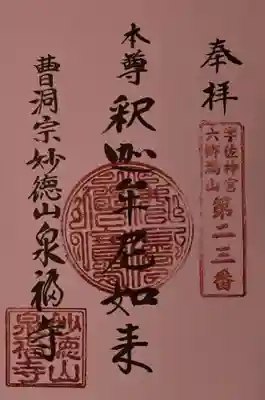 奉拝
宇佐神宮
六郷満山
第二三番
本尊
釈迦牟尼如来
曹洞宗妙徳山泉福寺
妙徳山
泉福寺